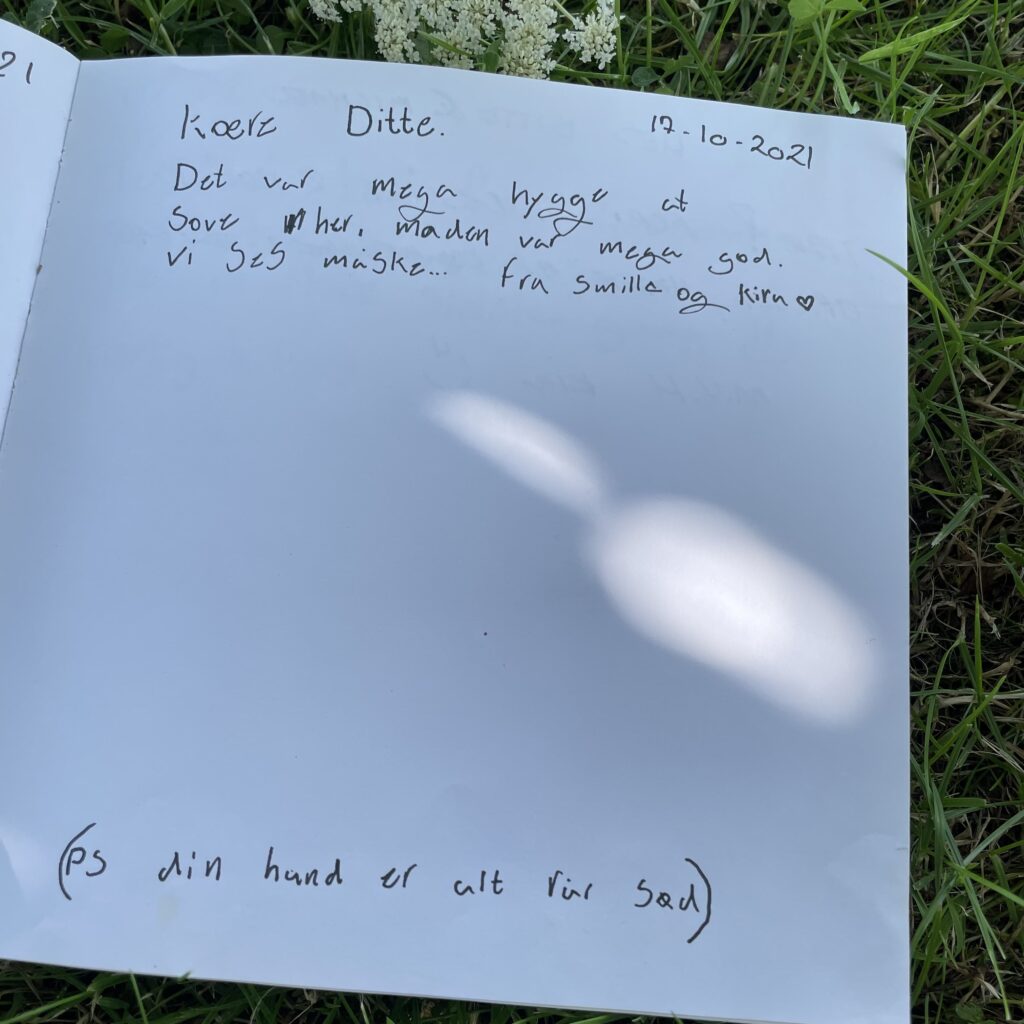 21
Kære Ditte.
17-10-2021
Det var mega hygge at
sove her, maden var mega god.
vi ses måske... fra Smilla og Kira ♥
(PS din hund er alt for sød)